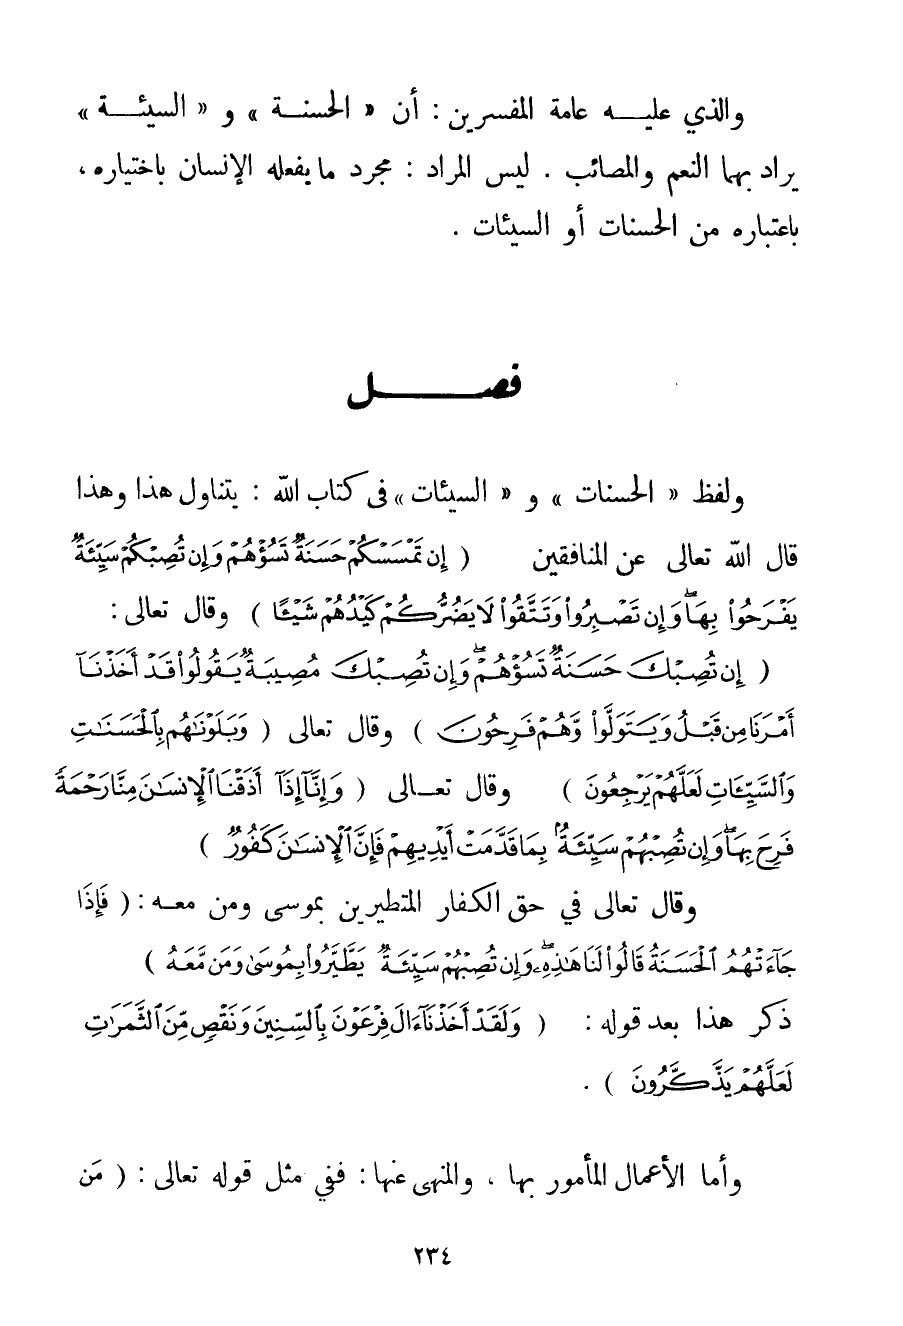 والذي عليه عامة المفسرين : أن « الحسنة » و « السيئة »
يراد بهما النعم والمصائب . ليس المراد : مجرد ما يفعله الإنسان باختياره ،
باعتباره من الحسنات أو السيئات .
فصل
ولفظ « الحسنات » و « السيئات » في كتاب الله : يتناول هذا وهذا
قال الله تعالى عن المنافقين ( إِن تَمْسَسْكُمْ حَسَنَةٌ تَسُؤْهُمْ وَإِن تُصِبْكُمْ سَيِّئَةٌ
يَفْرَحُوا۟ بِهَا ۖ وَإِن تَصْبِرُوا۟ وَتَتَّقُوا۟ لَا يَضُرُّكُمْ كَيْدُهُمْ شَيْـًٔا ) وقال تعالى :
( إِن تُصِبْكَ حَسَنَةٌ تَسُؤْهُمْ ۖ وَإِن تُصِبْكَ مُصِيبَةٌ يَقُولُوا۟ قَدْ أَخَذْنَآ
أَمْرَنَا مِن قَبْلُ وَيَتَوَلَّوا۟ وَّهُمْ فَرِحُونَ ) وقال تعالى ( وَبَلَوْنَٰهُم بِٱلْحَسَنَٰتِ
وَٱلسَّيِّـَٔاتِ لَعَلَّهُمْ يَرْجِعُونَ ) وقال تعالى ( وَإِنَّآ إِذَآ أَذَقْنَا ٱلْإِنسَٰنَ مِنَّا رَحْمَةً
فَرِحَ بِهَا ۖ وَإِن تُصِبْهُمْ سَيِّئَةٌۢ بِمَا قَدَّمَتْ أَيْدِيهِمْ فَإِنَّ ٱلْإِنسَٰنَ كَفُورٌ )
وقال تعالى في حق الكفار المتطيرين بموسى ومن معه : ( فَإِذَا
جَآءَتْهُمُ ٱلْحَسَنَةُ قَالُوا۟ لَنَا هَٰذِهِۦ ۖ وَإِن تُصِبْهُمْ سَيِّئَةٌ يَطَّيَّرُوا۟ بِمُوسَىٰ وَمَن مَّعَهُۥ )
ذكر هذا بعد قوله : ( وَلَقَدْ أَخَذْنَآ ءَالَ فِرْعَوْنَ بِٱلسِّنِينَ وَنَقْصٍ مِّنَ ٱلثَّمَرَٰتِ
لَعَلَّهُمْ يَذَّكَّرُونَ ) .
وأما الأعمال المأمور بها ، والمنهى عنها : ففي مثل قوله تعالى : ( مَن
٢٣٤